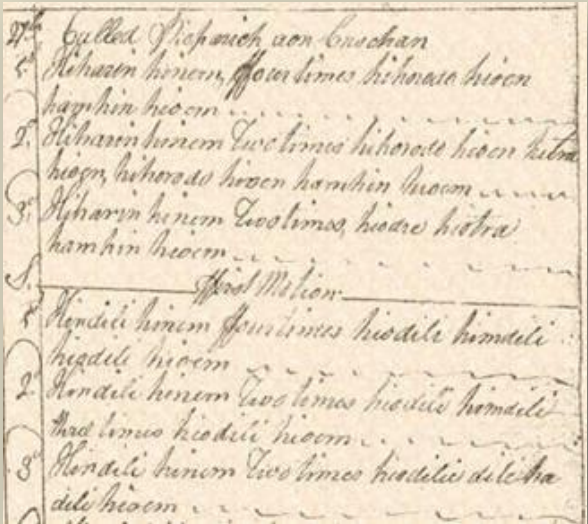 27th Called Pioparich aon Cruchan
1st Hiharin hinem, ffour times hihorodo hioen
hamhin hioem
2d Hiharin hinem Two times hihorodo hioen hiotra
hioen, hihorodo hioen hamhin hioem
3d Hiharin hinem Two times, hiodre hiotra
hamhin hioem
ffirst Motion
1st Hindili hinem ffour times hiodili himdili
hiodili hioem
2d Hindili hinem Two times hiodili himdili
three times hiodili hioem
3d Hindili hinem Two times hiodili dili ha
dili hioem